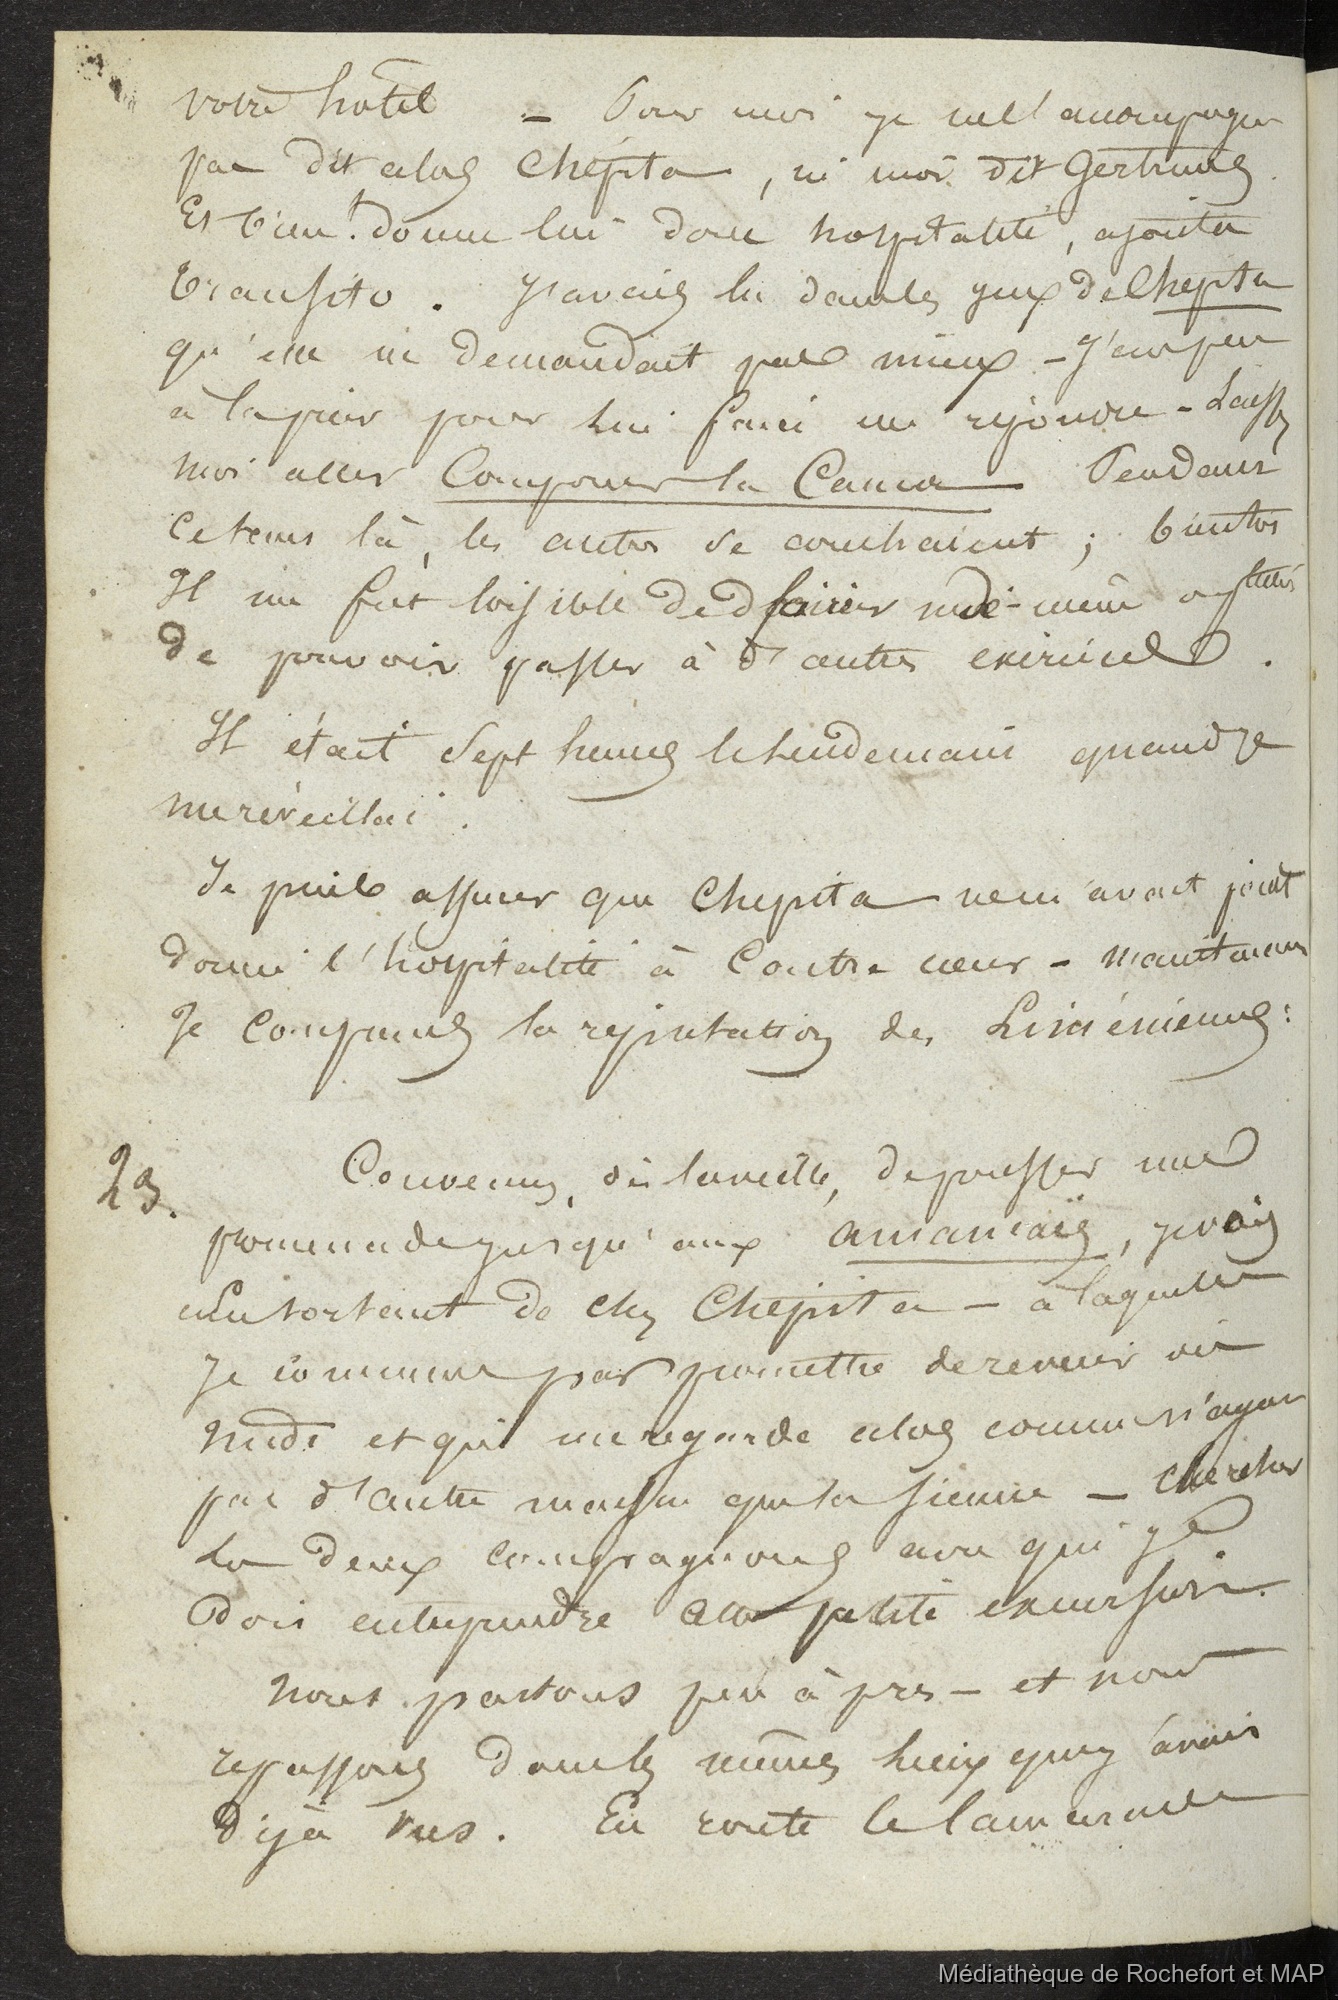 votre hôtel – Pour moi je ne l'accompagne
pas dit alors Chépita, ni moi dit Gertrudes.
Et bien! donne lui donc hospitalité, ajouta
Transito. J'avais lu dans les yeux de Chepita
qu'elle ne demandait pas mieux – J'eus peu
à la prier pour lui faire me répondre – Laissez
moi aller Componer la Cama Pendant
ce tems là, les autres se couchaient ; bientôt
Il me fut loisible de moi-même
de pouvoir passer à d'autres exercices.
Il était sept heures le lendemain quand je
me réveillai.
Je puis assurer que Chepita ne m'avait point
donné l'hospitalité à contre cœur – maintenant
Je comprends la réputation des Liméniennes :
23.
Convenus, dès la veille, de pousser une
promenade jusqu'aux amancaës, je vais
en sortant de chez Chepita – à laquelle
Je commence par promettre de revenir
midi et qui me regarde alors comme n'ayant
pas d'autre maison que la sienne – chercher
les deux compagnons avec qui je
dois entreprendre cette petite excursion.
Nous partons peu après – et nous
repassons dans les mêmes lieux que j'avais
déjà vus. En route le
Médiathèque de Rochefort et MAP